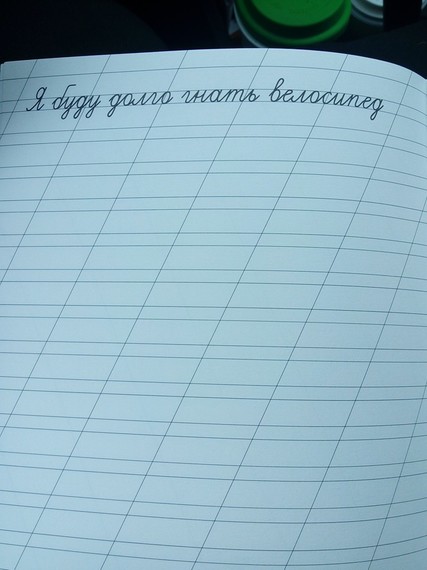 Я буду долго гнать велосипед